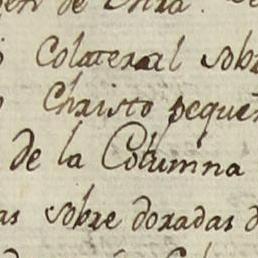 de
Colateral sobr
Christo peque
de la Columna
as sobre doradas d